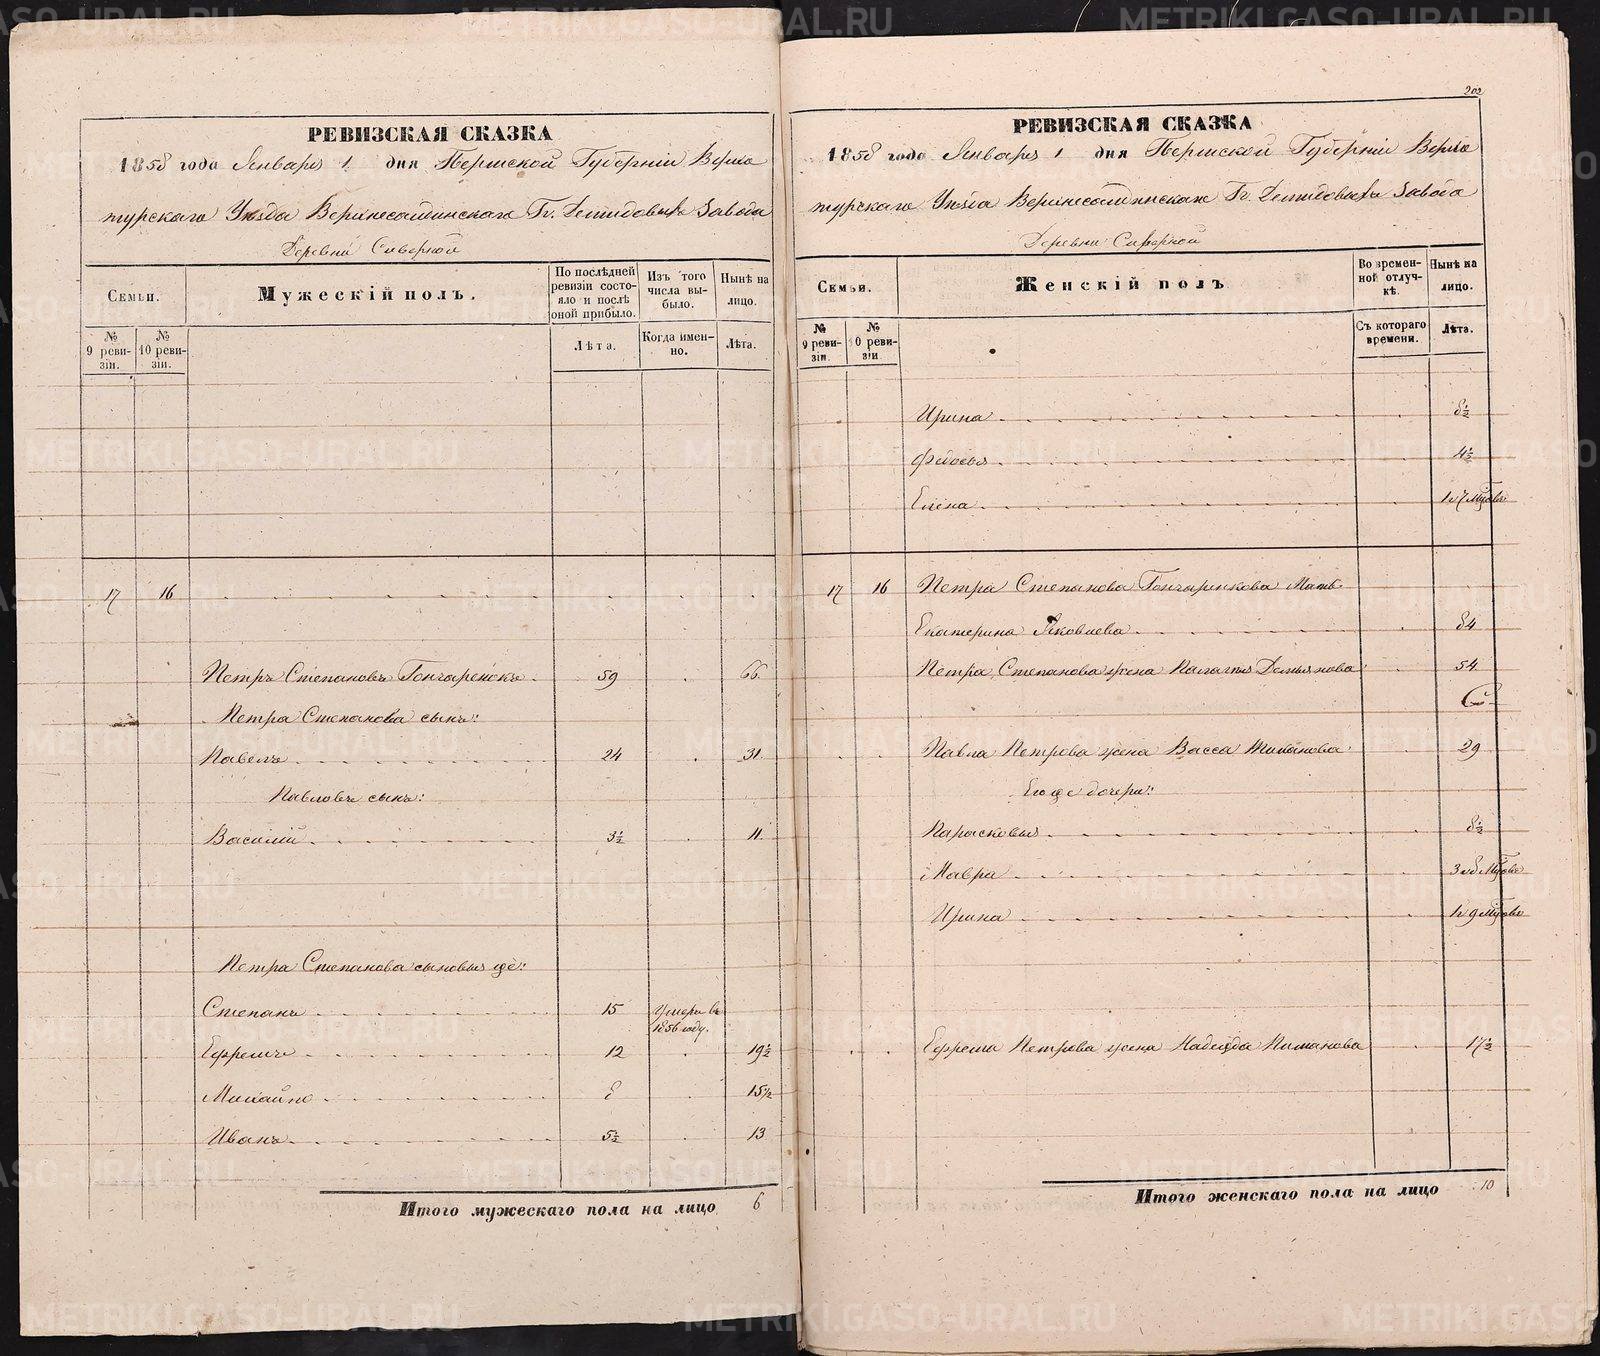 РЕВИЗСКАЯ СКАЗКА
1858 года Января 1 дня Пермской Губерніи Верхо
турскаго Уѣзда Верхнесалдинскаго Гг. Демидовыхъ Завода
Деревни Северной
Семьи.
Мужескій полъ.
По послѣдней ревизіи состояло и послѣ оной прибыло.
Изъ того числа выбыло.
Нынѣ на лицо.
№ 9 ревизіи.
№ 10 ревизіи.
Лѣта.
Когда именно.
Лѣта.
17 16
Петръ Степановъ Гончаренокъ 59 66
Петра Степанова сынъ:
Павелъ 24 31
Павловъ сынъ:
Василій 3½ 11
Петра Степанова сыновья ще:
Степанъ 15 Умеръ въ 1856 году.
Ефремъ 12 19½
Михайло 8 15½
Иванъ 5½ 13
Итого мужескаго пола на лицо 6
202
РЕВИЗСКАЯ СКАЗКА
1858 года Января 1 дня Пермской Губерніи Верхо
турскаго Уѣзда Верхнесалдинскаго Гг. Демидовыхъ Завода
Деревни Северной
Семьи.
Женскій полъ
Во временной отлучкѣ.
Нынѣ на лицо.
№ 9 ревизіи
№ 10 ревизіи
Съ котораго времени.
Лѣта.
Ирина 8½
Федосья 4½
Елена 1 и 7 мѣсяцовъ
17 16 Петра Степанова Гончаренкова Мать
Екатерина Яковлева 84
Петра Степанова жена Палагея Демьянова 54
Павла Петрова жена Васса 29
Его же дочери:
Парасковья 8½
Мавра 3 и 8 Мѣсяцовъ
Ирина 1 и 9 мѣсяцовъ
Ефрема Петрова жена Надежда Пиманова 17½
Итого женскаго пола на лицо 10
METRIKI.GASO-URAL.RU